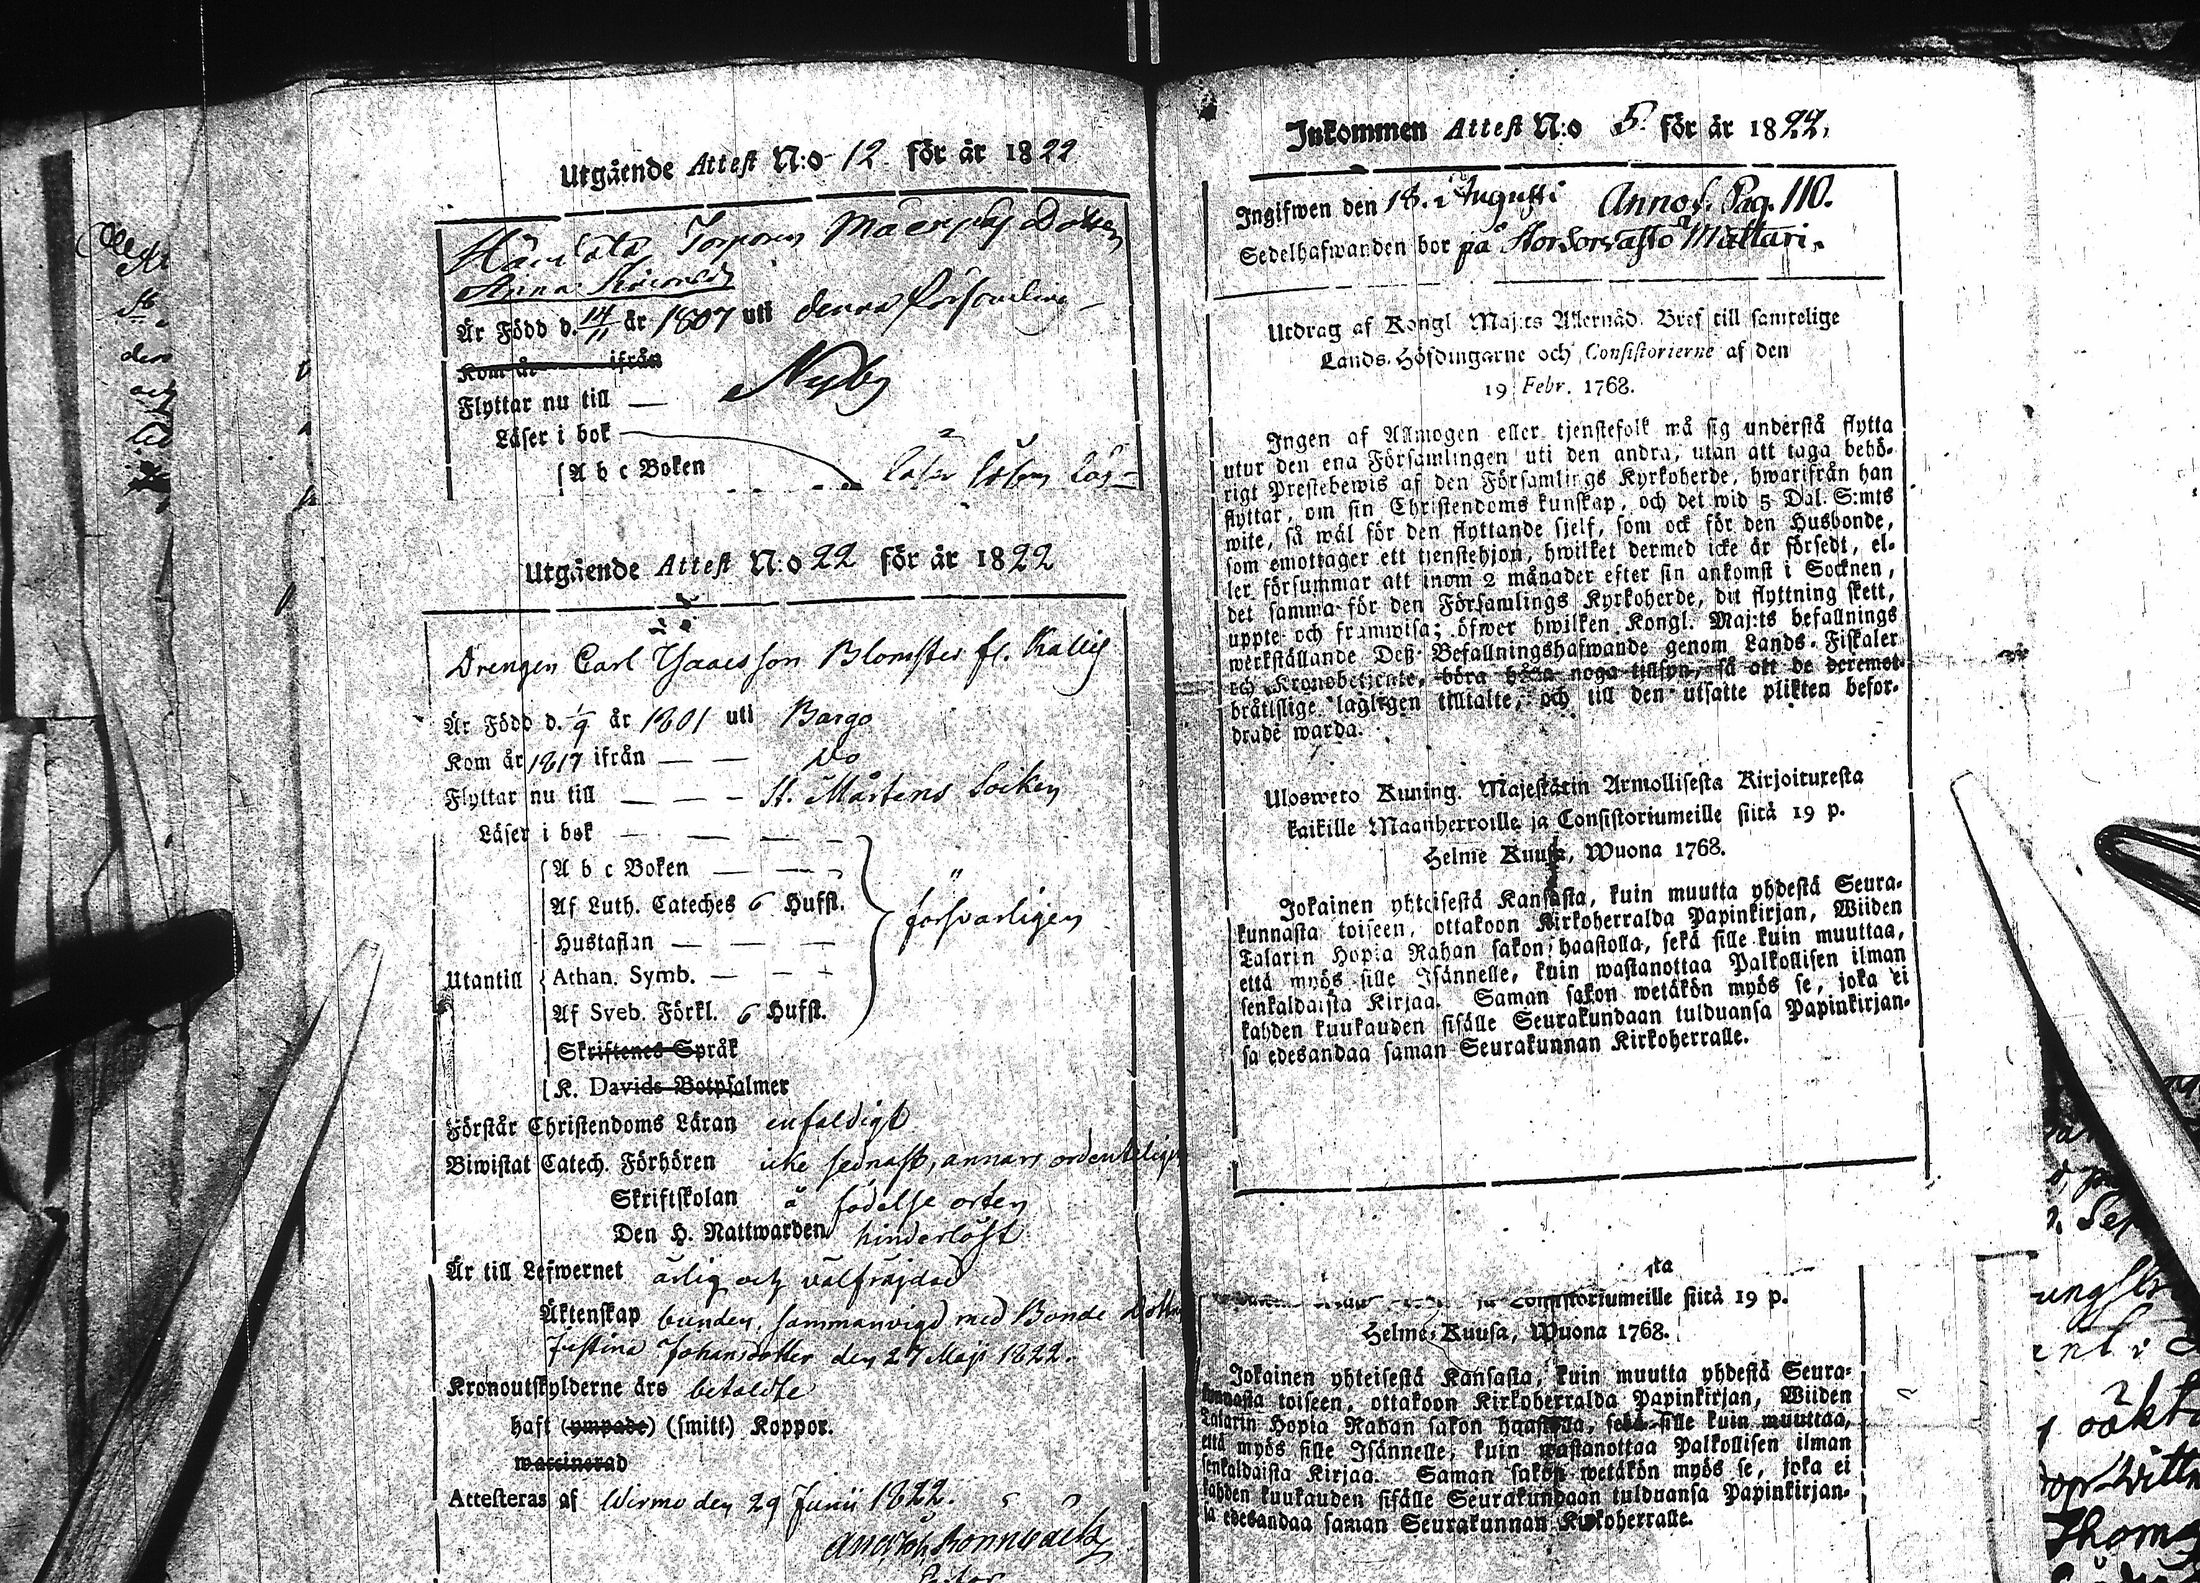 Utgående Attest N:o 12 för år 1822
Torparen Dotter
Anna
Är Född d. 14/11 år 1807 uti denna Församling
Kom år ifrån
Flyttar nu till — Nyby
Läser i bok
A b c Boken
Utgående Attest N:o 22 för år 1822
Drengen Carl Isaacsson Blomster fr. Kallis
Är Född d. 1/9 år 1801 uti Bargo
Kom år 1817 ifrån — — Do
Flyttar nu till — — — St. Mårtens Socken
Läser i bok — — — —
A b c Boken — — —
Af Luth. Cateches 6 Hufst. försvarligen
Hustaflan — — —
Utantill Athan. Symb. — — —
Af Sveb. Förkl. 6 Hufst.
Skriftenes Språk
K. Davids Botpsalmer
Förstår Christendoms Läran enfaldigt
Biwistat Catech. Förhören icke sednast, annars ordenteligen
Skriftskolan å födelse orten
Den H. Nattwarden hinderlöst
Är till Lefwernet ärlig och välfräjdad
Äktenskap bunden, sammanvigd med Bonde Dottren
Justina Johansdotter den 27 Maji 1822.
Kronoutskylderne äro betaldte
haft (ympade) (smitt) Koppor.
waccinerad
Attesteras af Wirmo den 29 Junii 1822.
Inkommen Attest N:o 5. för år 1822,
Ingifwen den 18. Augusti Annot. Pag. 110.
Sedelhafwanden bor på Mattari.
Utdrag af Kongl Maj:ts Allernåd. Bref till samtelige
Lands-Höfdingarne och Consistorierne af den
19 Febr. 1768.
Ingen af Allmogen eller tjenstefolk må sig understå flytta
utur den ena Församlingen uti den andra, utan att taga behö-
rigt Prestebewis af den Församlings Kyrkoherde, hwarifrån han
flyttar, om sin Christendoms kunskap, och det wid 5 Dal. S:mts
wite, så wäl för den flyttande sjelf, som ock för den Husbonde,
som emottager ett tjenstehjon, hwilket dermed icke är försedt, el-
ler försummar att inom 2 månader efter sin ankomst i Socknen,
det samma för den Församlings Kyrkoherde, dit flyttning skett,
uppte och framwisa; öfwer hwilken Kongl. Maj:ts befallnings
werkställande Deß Befallningshafwande genom Lands-Fiskaler
och Kronobetjente, böra hafwa noga tillsyn, så att de deremot
bråttslige lagligen tilltalte, och till den utsatte plikten befor-
drade warda.
Uloswето Kuning. Majestätin Armollisesta Kirjoituxesta
kaikille Maanherroille ja Consistoriumeille siitä 19 p.
Helme Kuusa, Wuona 1768.
Jokainen yhteisestä Kansasta, kuin muutta yhdestä Seura-
kunnasta toiseen, ottakoon Kirkoherralda Papinkirjan, Wiiden
Talarin Hopia Rahan sakon haastolla, sekä sille kuin muuttaa,
että myös sille Isännelle, kuin wastanottaa Palkollisen ilman
senkaldaista Kirjaa. Saman sakon wetäkön myös se, joka ei
kahden kuukauden sisälle Seurakundaan tulduansa Papinkirjan-
sa edesandaa saman Seurakunnan Kirkoherralle.
sta
ja Consistoriumeille siitä 19 p.
Helme, Kuusa, Wuona 1768.
Jokainen yhteisestä Kansasta, kuin muutta yhdestä Seura-
kunnasta toiseen, ottakoon Kirkoherralda Papinkirjan, Wiiden
Talarin Hopia Rahan sakon haastolla, sekä sille kuin muuttaa,
että myös sille Isännelle, kuin wastanottaa Palkollisen ilman
senkaldaista Kirjaa. Saman sakon wetäkön myös se, joka ei
kahden kuukauden sisälle Seurakundaan tulduansa Papinkirjan-
sa edesandaa saman Seurakunnan Kirkoherralle.